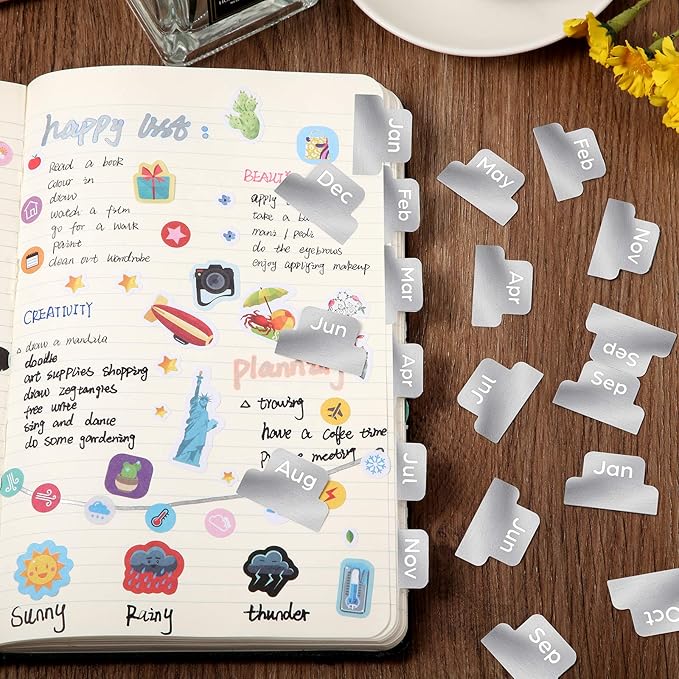 happy list :
Read a book
colour in
draw
watch a film
go for a walk
Paint
clean out wardrobe
BEAUTY
apply
take a
mani / pedi
do the eyebrows
enjoy applying makeup
CREATIVITY
draw a mandala
doodle
art supplies shopping
draw zegtangles
free write
sing and dance
do some gardening
planning
trowing
have a coffee time
meeting
Sunny
Rainy
thunder
Jan
Feb
Mar
Apr
Jul
Nov
Dec
Jun
Aug
May
Feb
Nov
Apr
Sep
Sep
Jul
Jan
Jun
Sep
Oct